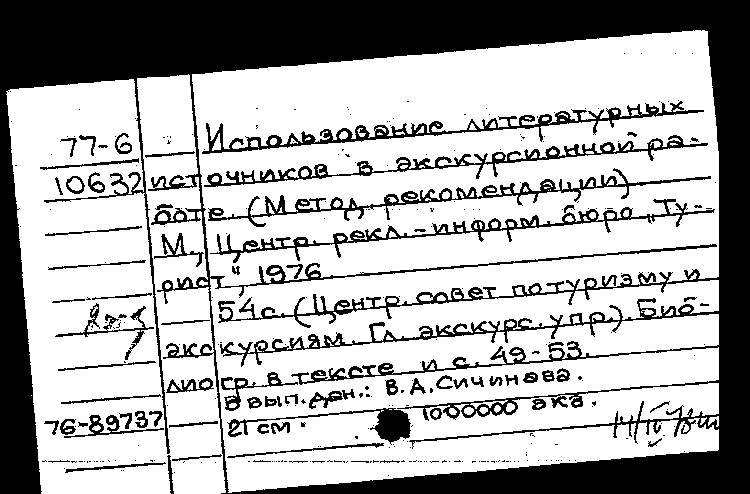 77-6 Использование литературных
10632 источников в экскурсионной ра-
боте. (Метод. рекомендации)
М., Центр. рекл.-информ. бюро „Ту-
рист“, 1976.
54 с. (Центр. совет по туризму и
экскурсиям. Гл. экскурс. упр.). Биб-
лиогр. в тексте и с. 49-53.
В вып. дан.: В.А.Сичинава.
76-89737 21 см. 1000000 экз.